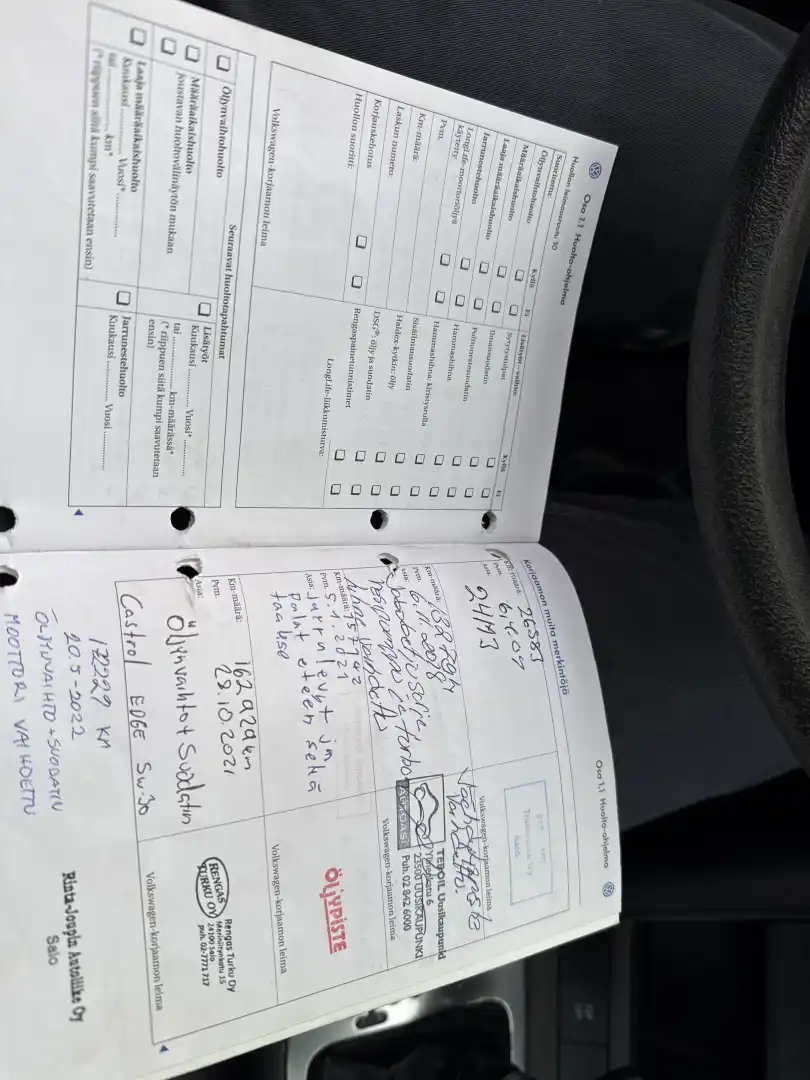 Osa 1.1 Huolto-ohjelma
Huollon leimausruutu 30
Suoritettu:
Kyllä
Ei
Öljynvaihtohuolto
Määräaikaishuolto
Laaja määräaikaishuolto
Jarrunestehuolto
LongLife-moottoriöljyä
käytetty:
Pvm.
Km-määrä:
Laskun numero:
Korjauskehotus
Huollon suoritti:
Lisätyöt – vaihto:
Kyllä
Ei
Sytytystulpat
Ilmansuodatin
Polttonestesuodatin
Hammashihna
Hammashihna, kiristysrulla
Sisäilmansuodatin
Haldex-kytkin: öljy
DSG®: öljy ja suodatin
Rengaspainetunnistimet
LongLife-liikkumisturva:
Volkswagen-korjaamon leima
Seuraavat huoltotapahtumat
Öljynvaihtohuolto
Määräaikaishuolto
joustavan huoltovälinäytön mukaan
Laaja määräaikaishuolto
Kuukausi ............ Vuosi* ............
tai ............ km*
(* riippuen siitä kumpi saavutetaan ensin)
Lisätyöt
Kuukausi ............ Vuosi* ............
tai ............ km-määrässä*
(* riippuen siitä kumpi saavutetaan
ensin)
Jarrunestehuolto
Kuukausi ............ Vuosi ............
Osa 1.1 Huolto-ohjelma
Korjaamon muita merkintöjä
Km-määrä: 26583
Pvm. 6.4.09
Asia: 24M3
Volkswagen-korjaamon leima
Km-määrä:
Pvm.
Asia:
vaihdettu
TEBOIL Uusikaupunki
23500 UUSIKAUPUNKI
Puh. 02 842 6000
Volkswagen-korjaamon leima
Km-määrä: 157142
Pvm. 5.1.2021
Asia: Jarrulevyt ja
palat eteen sekä
taakse
ÖLJYPISTE
Volkswagen-korjaamon leima
Km-määrä: 162 929 km
Pvm. 28.10.2021
Asia: Öljynvaihto + Suodatin
Castrol EDGE 5w-30
RENGAS
TURKU OY
Rengas Turku Oy
24100 Salo
puh. 02-7771 717
Volkswagen-korjaamon leima
172229 KM
20.5-2022
ÖLJYNVAIHTO + SUODATIN
MOOTTORI VAIHDETTU
Rinta-Joupin Autoliike Oy
Salo